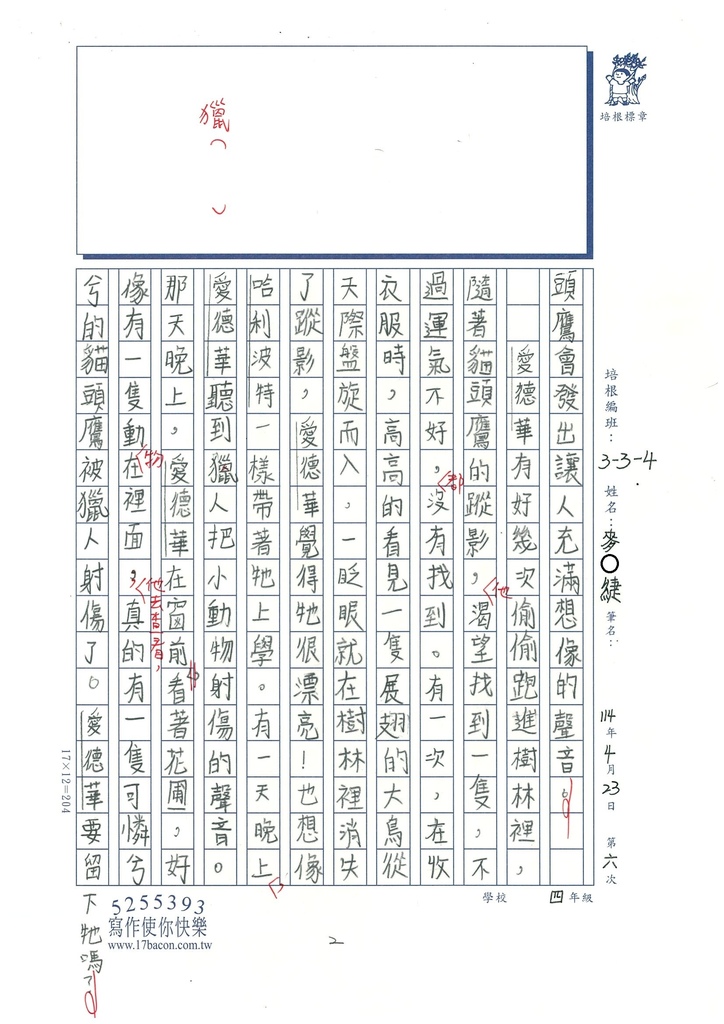 獵（　）
培根標章
培根編班：3-3-4
姓名：麥○緁
筆名：
114年4月23日
第六次
頭鷹會發出讓人充滿想像的聲音。
愛德華有好幾次偷偷跑進樹林裡，
隨著貓頭鷹的蹤影，他渴望找到一隻，不
過運氣不好，都沒有找到。有一次，在收
衣服時，高高的看見一隻展翅的大鳥從
天際盤旋而入，一眨眼就在樹林裡消失
了蹤影，愛德華覺得牠很漂亮！也想像
哈利波特一樣帶著牠上學。有一天晚上
愛德華聽到獵人把小動物射傷的聲音。
那天晚上，愛德華在窗前看著花圃，好
像有一隻動物在裡面，他去查看，真的有一隻可憐兮
兮的貓頭鷹被獵人射傷了。愛德華要留
下牠嗎？
17×12=204
學校
四年級
5255393
寫作使你快樂
www.17bacon.com.tw
2